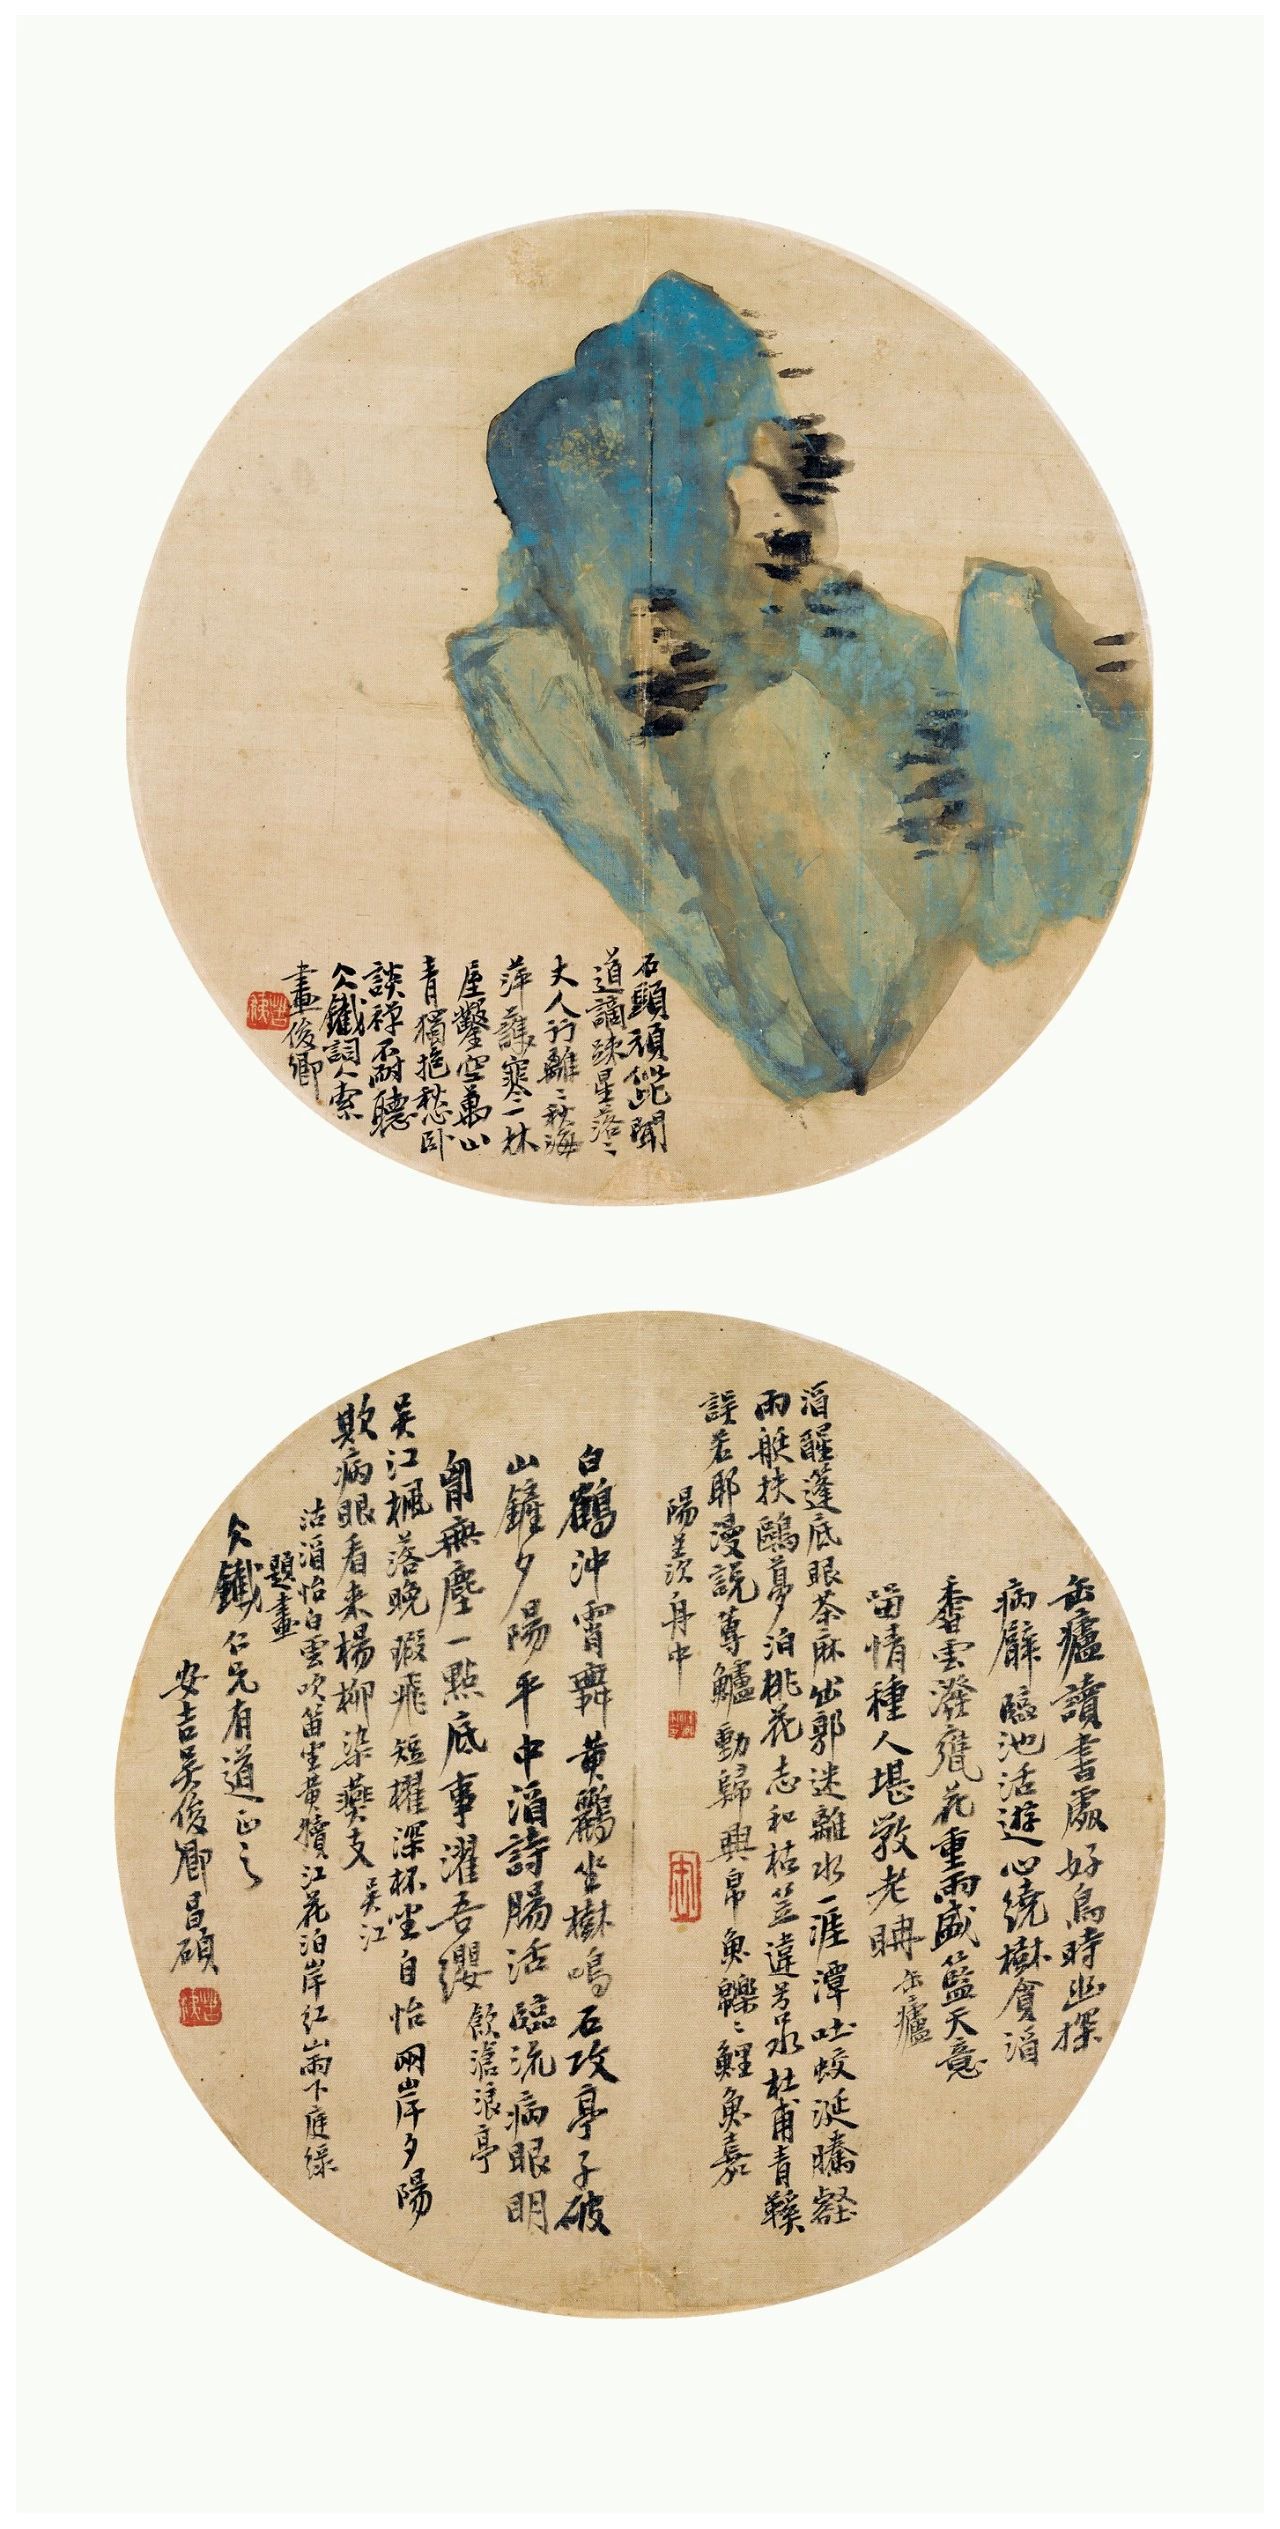 石頭頑能聞
道謫疎星落〻
大人行離〻秋海
萍薜寒一林
屋鑿空萬山
青獨抱愁臥
談禪不耐聽
公鐵詞人索
畫俊卿
缶廬讀書處好鳥時幽探
病臂臨池活遊心繞樹貪酒
香雲潑甕花重雨盛籃天意
留情種人堪教老聃 缶廬
酒醒蓬底眼茶麻出郭迷離水一涯潭吐蛟涎騰壑
雨艇扶鷗夢泊桃花志和枯笠違芳水杜甫青鞵
誤若耶漫說蓴鱸動歸興帛魚鱳〻鯉魚嘉
陽羨舟中
白鶴沖霄舞黃鸝坐樹鳴石攻亭子破
山鏟夕陽平中酒詩腸活臨流病眼明
胷無塵一點底事濯吾纓 飲滄浪亭
吳江楓落晚霞飛短櫂深杯坐自怡兩岸夕陽
欺病眼看來楊柳染燕支 吳江
沽酒怡白雲吹笛坐黃犢江花泊岸紅山雨下庭綠
題畫
公鐵仁兄有道正之
安吉吳俊卿昌碩